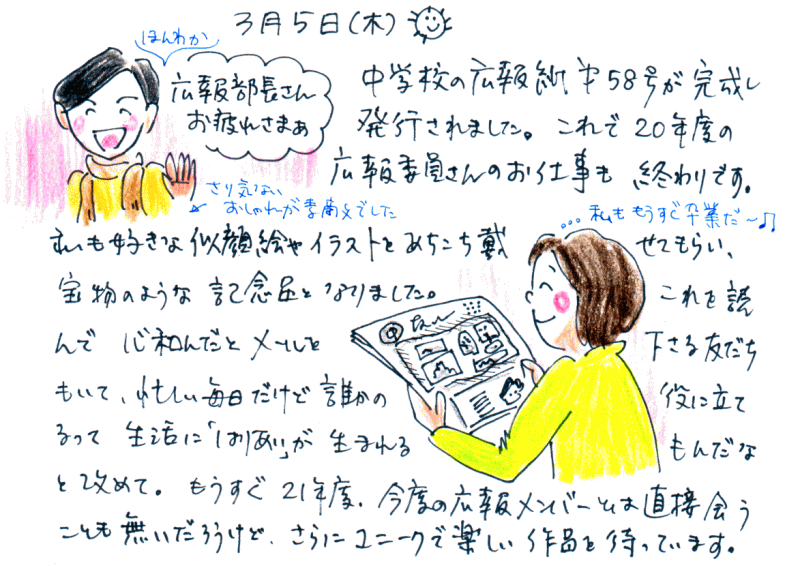 3月5日(木)
ほんわか
広報部長さん
お疲れさまぁ
中学校の広報紙㐧58号が完成し
発行されました。これで20年度の
広報委員さんのお仕事も 終わりです。
さり気ない
おしゃれが素敵でした
…私ももうすぐ卒業だ〜♫
私も好きな似顔絵やイラストをあちこち載せてもらい、
宝物のような記念品となりました。これを読
んで 心和んだとメールを下さる友だち
もいて、忙しい毎日だけど誰かの役に立て
るって 生活に「はりあい」が生まれるもんだな
と改めて。もうすぐ21年度、今度の広報メンバーとは直接会う
ことも無いだろうけど、さらにユニークで楽しい作品を待っています。